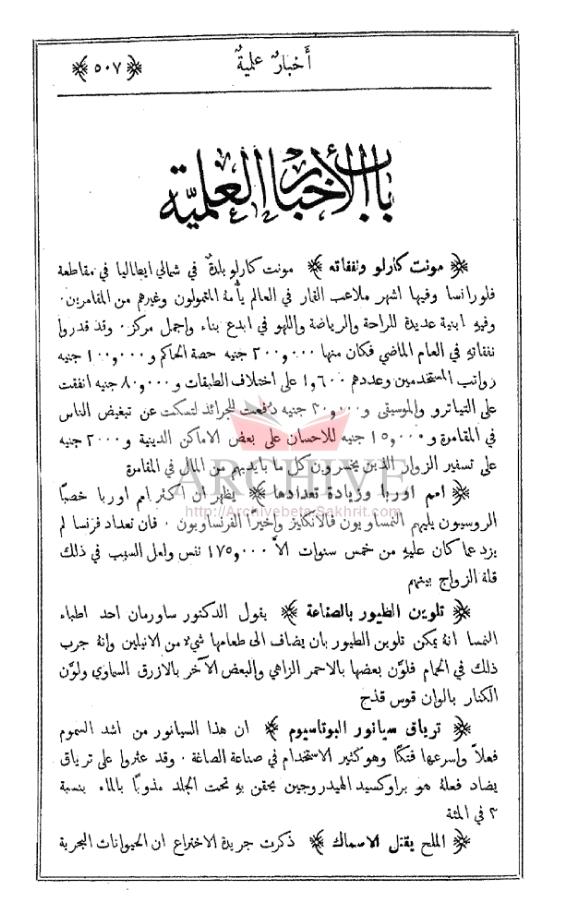 أخبارٌ علميةٌ
﴿ ٥٠٧ ﴾
باب الأخبار العلمية
﴿ مونت كارلو ونفقاته ﴾ مونت كارلو بلدة في شمالي ايطاليا في مقاطعة
فلورانسا وفيها اشهر ملاعب القمار في العالم يأمة المتمولون وغيرهم من المقامرين.
وفيهِ ابنية عديدة للراحة والرياضة واللهو في ابدع بناء واجمل مركز. وقد قدروا
نفقاتهِ في العام الماضي فكان منها ٢٠٠,٠٠٠ جنيه حصة الحاكم و ١٠٠,٠٠٠ جنيه
رواتب المستخدمين وعددهم ١,٦٠٠ على اختلاف الطبقات و ٨٠,٠٠٠ جنيه انفقت
على التياترو والموسيقى و ٢٠,٠٠٠ جنيه دُفعت للجرائد لتسكت عن تبغيض الناس
في المقامرة و ١٥,٠٠٠ جنيه للاحسان على بعض الاماكن الدينية و ٢٠٠٠ جنيه
على تسفير الزوار الذين يخسرون كل ما بايديهم من المال في المقامرة
ARCHIVE
﴿ امم اوربا وزيادة تعدادها ﴾ يظهر ان اكثر امم اوربا خصبًا
http://Archivebeta.Sakhrit.com
الروسيون يليهم النمساويون فالانكليز واخيرًا الفرنساويون. فان تعداد فرنسا لم
يزد عما كان عليهِ من خمس سنوات الاَّ ١٧٥,٠٠٠ نفس ولعل السبب في ذلك
قلة الزواج بينهم
﴿ تلوين الطيور بالصناعة ﴾ يقول الدكتور ساورمان احد اطباء
النمسا انهُ يمكن تلوين الطيور بان يضاف الى طعامها شيءٌ من الانيلين وانهُ جرب
ذلك في الحمام فلوَّن بعضها بالاحمر الزاهي والبعض الآخر بالازرق السماوي ولوَّن
الكنار بالوان قوس قدح
﴿ ترياق سيانور البوتاسيوم ﴾ ان هذا السيانور من اشد السموم
فعلاً واسرعها فتكًا وهو كثير الاستخدام في صناعة الصاغة. وقد عثروا على ترياق
يضاد فعلهُ هو براوكسيد الهيدروجين يحقن بهِ تحت الجلد مذوبًا بالماء بنسبة
٣ في المئة
﴿ الملح يقتل الاسماك ﴾ ذكرت جريدة الاختراع ان الحيوانات البحرية